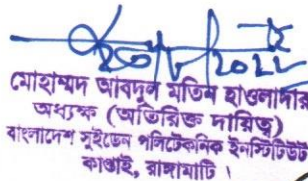 মোহাম্মদ আবদুল মতিন হাওলাদার
অধ্যক্ষ (অতিরিক্ত দায়িত্ব)
বাংলাদেশ সুইডেন পলিটেকনিক ইনস্টিটিউট
কাপ্তাই, রাঙ্গামাটি ।